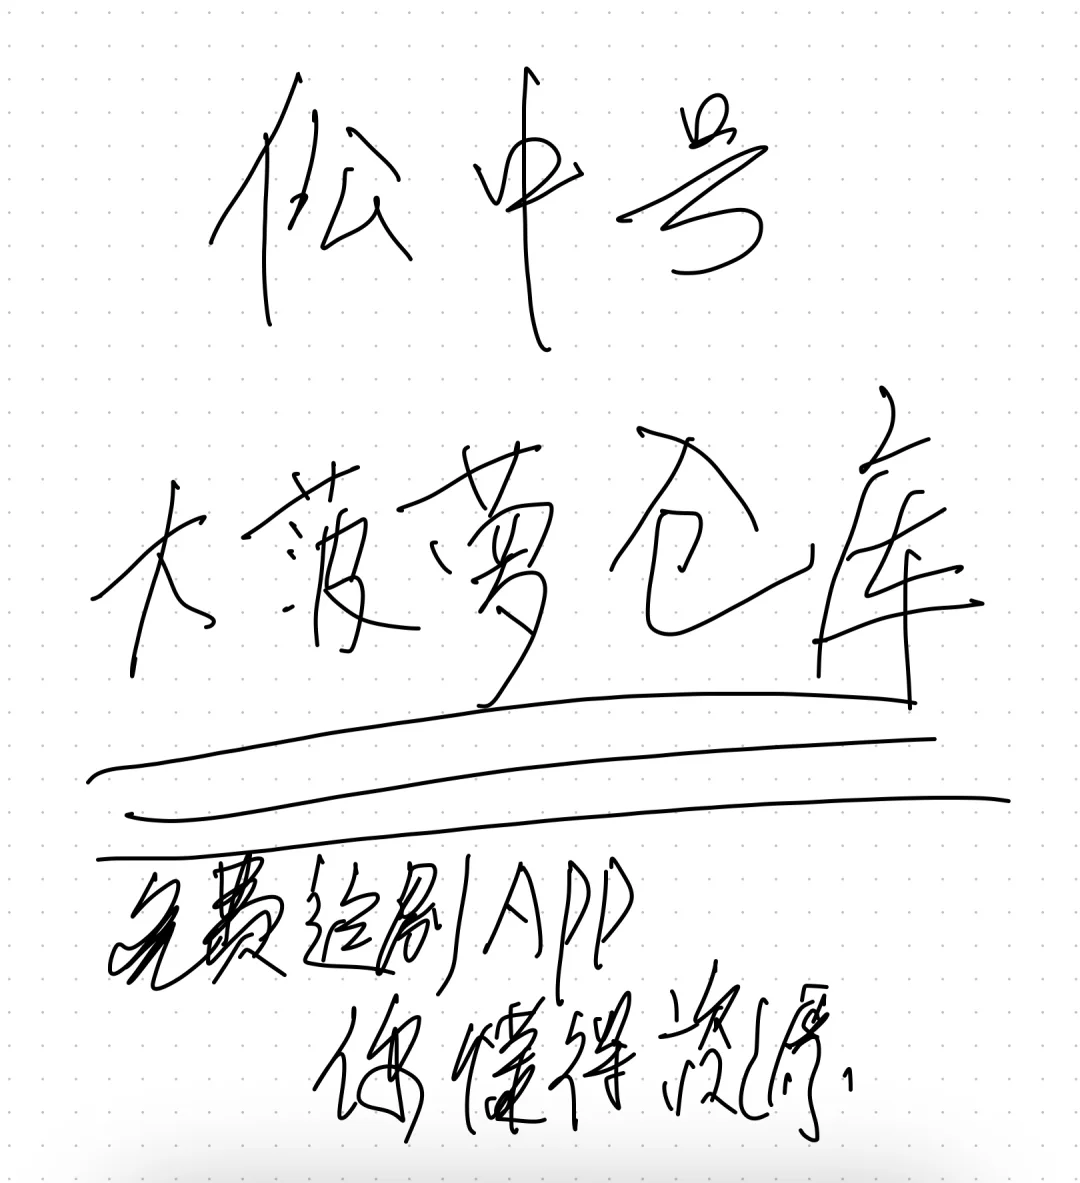 伀中号
大菠萝仓库
免费追剧APP
你懂得资源.